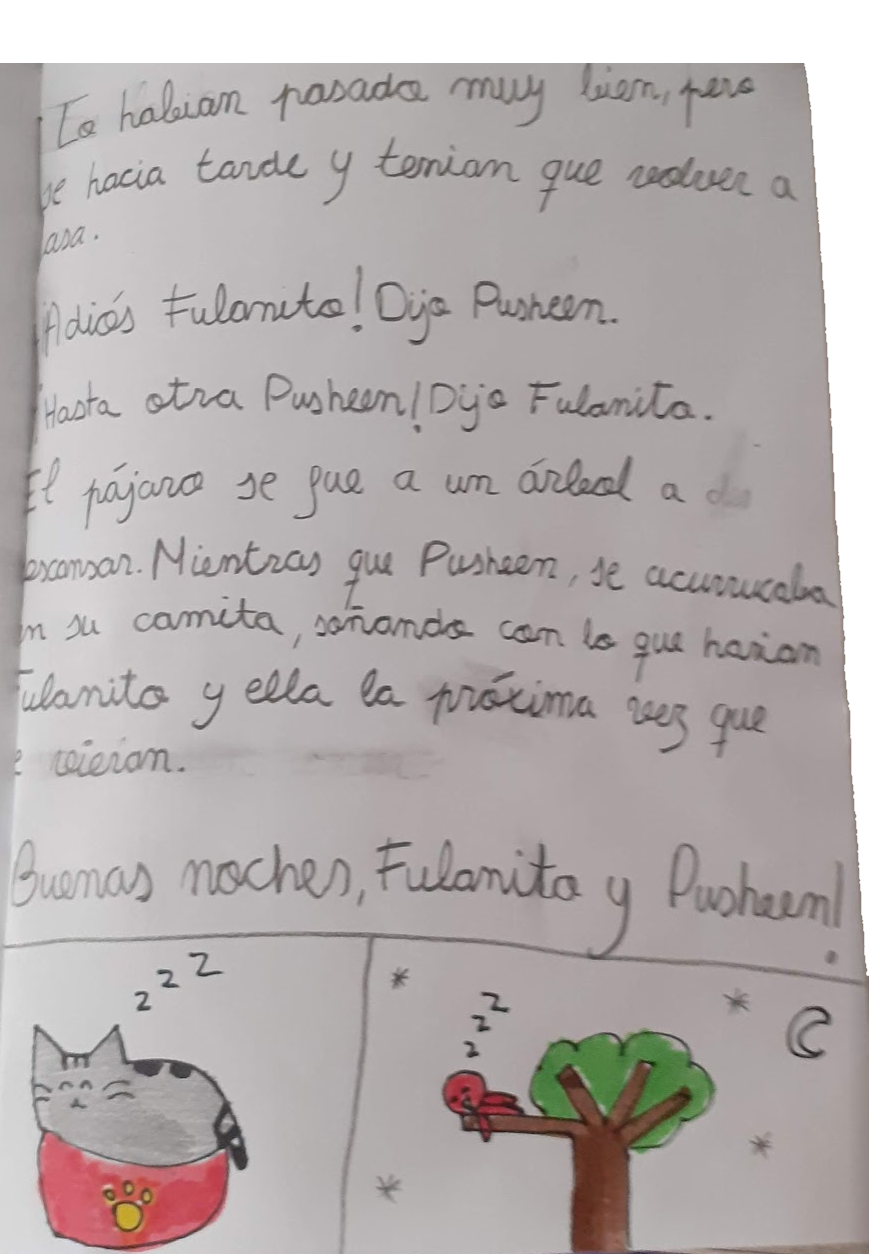 Lo habian pasado muy bien, pero
se hacia tarde y tenian que volver a
asa.
¡Adiós Fulanito! Dijo Pusheen.
¡Hasta otra Pusheen! Dijo Fulanito.
El pájaro se fue a un árbol a d
escansar. Mientras que Pusheen, se acurrucaba
en su camita, soñando con lo que harian
Fulanito y ella la próxima vez que
e vieran.
Buenas noches, Fulanito y Pusheen!
z z z
z z z